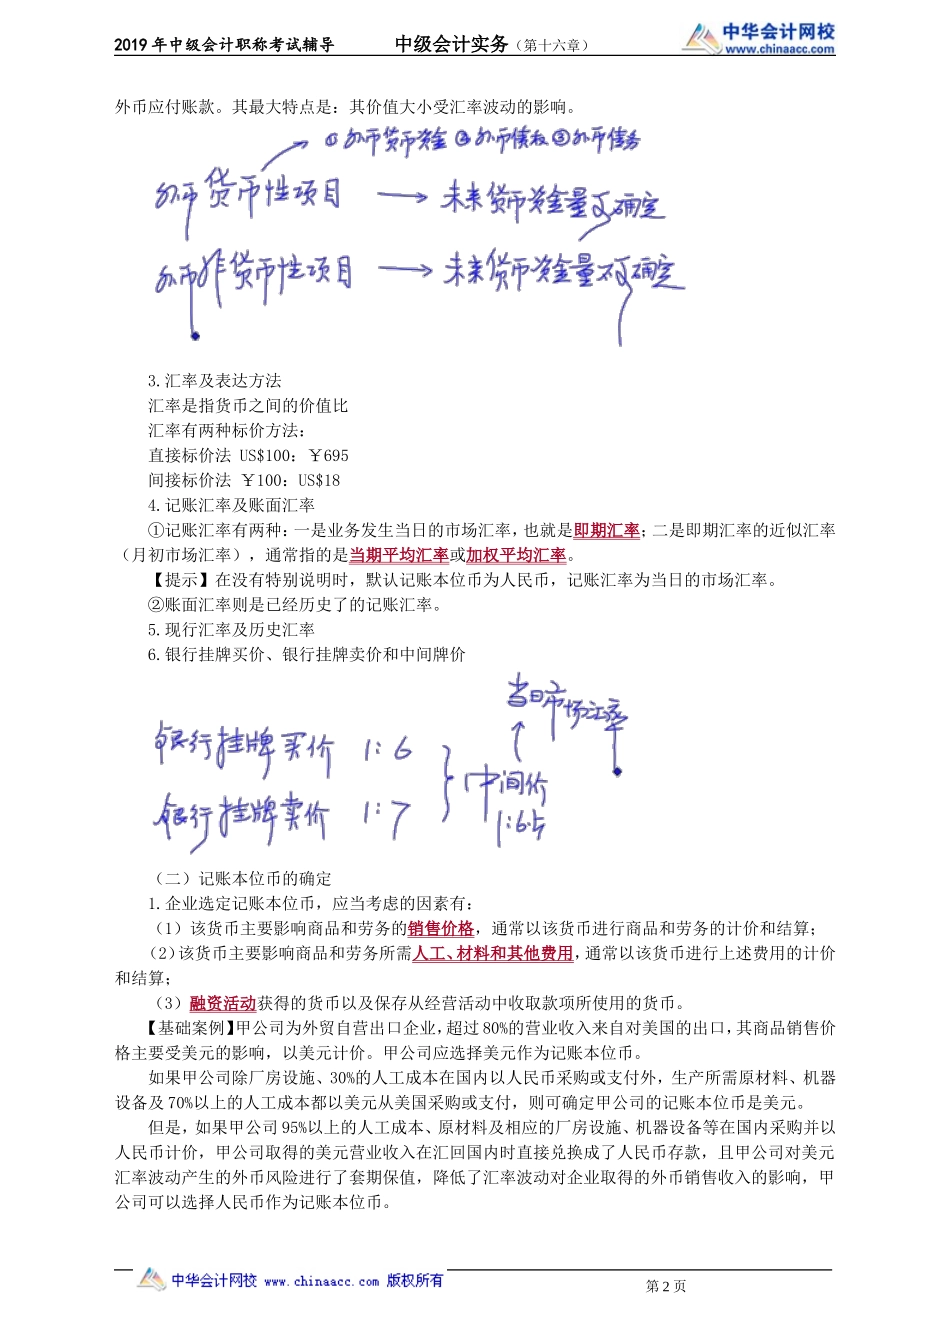 2019 年中级会计职称考试辅导 中级会计实务（第十六章）
中华会计网校
www.chinaacc.com
外币应付账款。其最大特点是：其价值大小受汇率波动的影响。
①外币货币资金②外币债权③外币债务
外币货币性项目 → 未来货币资金量可确定
外币非货币性项目 → 未来货币资金量不可确定
3.汇率及表达方法
汇率是指货币之间的价值比
汇率有两种标价方法：
直接标价法 US$100：￥695
间接标价法 ￥100：US$18
4.记账汇率及账面汇率
①记账汇率有两种：一是业务发生当日的市场汇率，也就是即期汇率；二是即期汇率的近似汇率
（月初市场汇率），通常指的是当期平均汇率或加权平均汇率。
【提示】在没有特别说明时，默认记账本位币为人民币，记账汇率为当日的市场汇率。
②账面汇率则是已经历史了的记账汇率。
5.现行汇率及历史汇率
6.银行挂牌买价、银行挂牌卖价和中间牌价
当日市场汇率
银行挂牌买价 1:6
中间价
银行挂牌卖价 1:7
1:6.5
（二）记账本位币的确定
1.企业选定记账本位币，应当考虑的因素有：
（1）该货币主要影响商品和劳务的销售价格，通常以该货币进行商品和劳务的计价和结算；
（2）该货币主要影响商品和劳务所需人工、材料和其他费用，通常以该货币进行上述费用的计价
和结算；
（3）融资活动获得的货币以及保存从经营活动中收取款项所使用的货币。
【基础案例】甲公司为外贸自营出口企业，超过 80%的营业收入来自对美国的出口，其商品销售价
格主要受美元的影响，以美元计价。甲公司应选择美元作为记账本位币。
如果甲公司除厂房设施、30%的人工成本在国内以人民币采购或支付外，生产所需原材料、机器
设备及 70%以上的人工成本都以美元从美国采购或支付，则可确定甲公司的记账本位币是美元。
但是，如果甲公司 95%以上的人工成本、原材料及相应的厂房设施、机器设备等在国内采购并以
人民币计价，甲公司取得的美元营业收入在汇回国内时直接兑换成了人民币存款，且甲公司对美元
汇率波动产生的外币风险进行了套期保值，降低了汇率波动对企业取得的外币销售收入的影响，甲
公司可以选择人民币作为记账本位币。
中华会计网校 www.chinaacc.com 版权所有
第 2 页